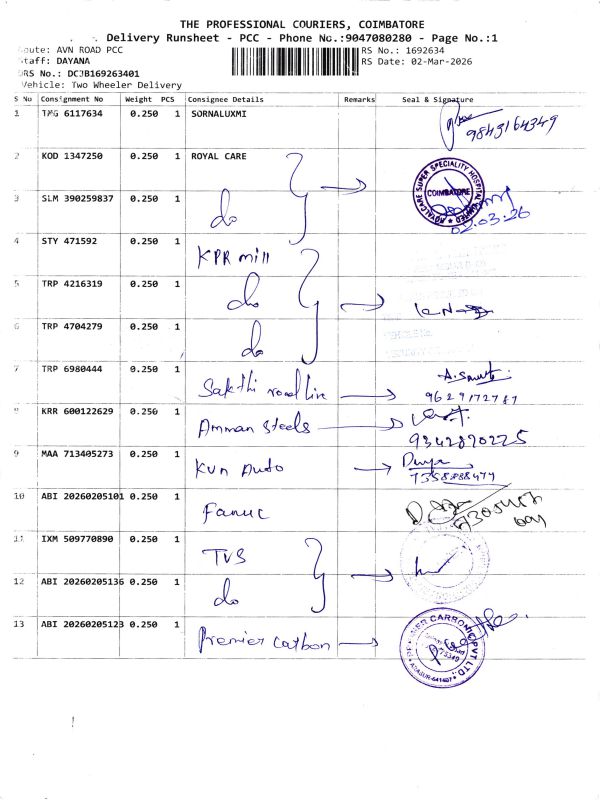 THE PROFESSIONAL COURIERS, COIMBATORE
Delivery Runsheet - PCC - Phone No.:9047080280 - Page No.:1
Route: AVN ROAD PCC
RS No.: 1692634
Staff: DAYANA
RS Date: 02-Mar-2026
DRS No.: DCJB169263401
Vehicle: Two Wheeler Delivery
S No Consignment No Weight PCS Consignee Details Remarks Seal & Signature
1 TMG 6117634 0.250 1 SORNALUXMI 9843164349
2 KOD 1347250 0.250 1 ROYAL CARE
ROYALCARE SUPER SPECIALITY HOSPITAL LIMITED COIMBATORE
3 SLM 390259837 0.250 1 do 02.03.26
4 STY 471592 0.250 1 KPR mill
5 TRP 4216319 0.250 1 do
6 TRP 4704279 0.250 1 do
7 TRP 6980444 0.250 1 Sakthi roadline 9629172787
8 KRR 600122629 0.250 1 Amman Steels 9342870225
9 MAA 713405273 0.250 1 KVN Auto Divya 7358888477
10 ABI 20260205101 0.250 1 Fanuc
11 IXM 509770890 0.250 1 TVS
12 ABI 20260205136 0.250 1 do
13 ABI 20260205123 0.250 1 Premier carbon